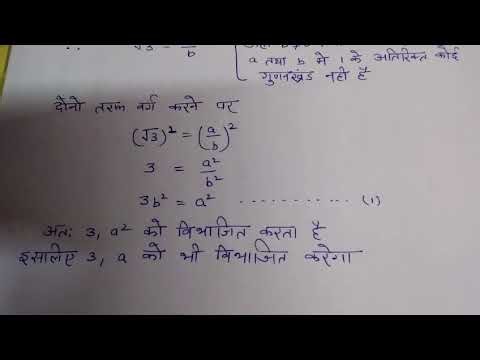 ∴ √3 = a/b
a तथा b में 1 के अतिरिक्त कोई
गुणनखंड नही है
दोनो तरफ वर्ग करने पर
(√3)² = (a/b)²
3 = a²/b²
3b² = a² ........... (1)
अतः 3, a² को विभाजित करता है
इसलिए 3, a को भी विभाजित करेगा